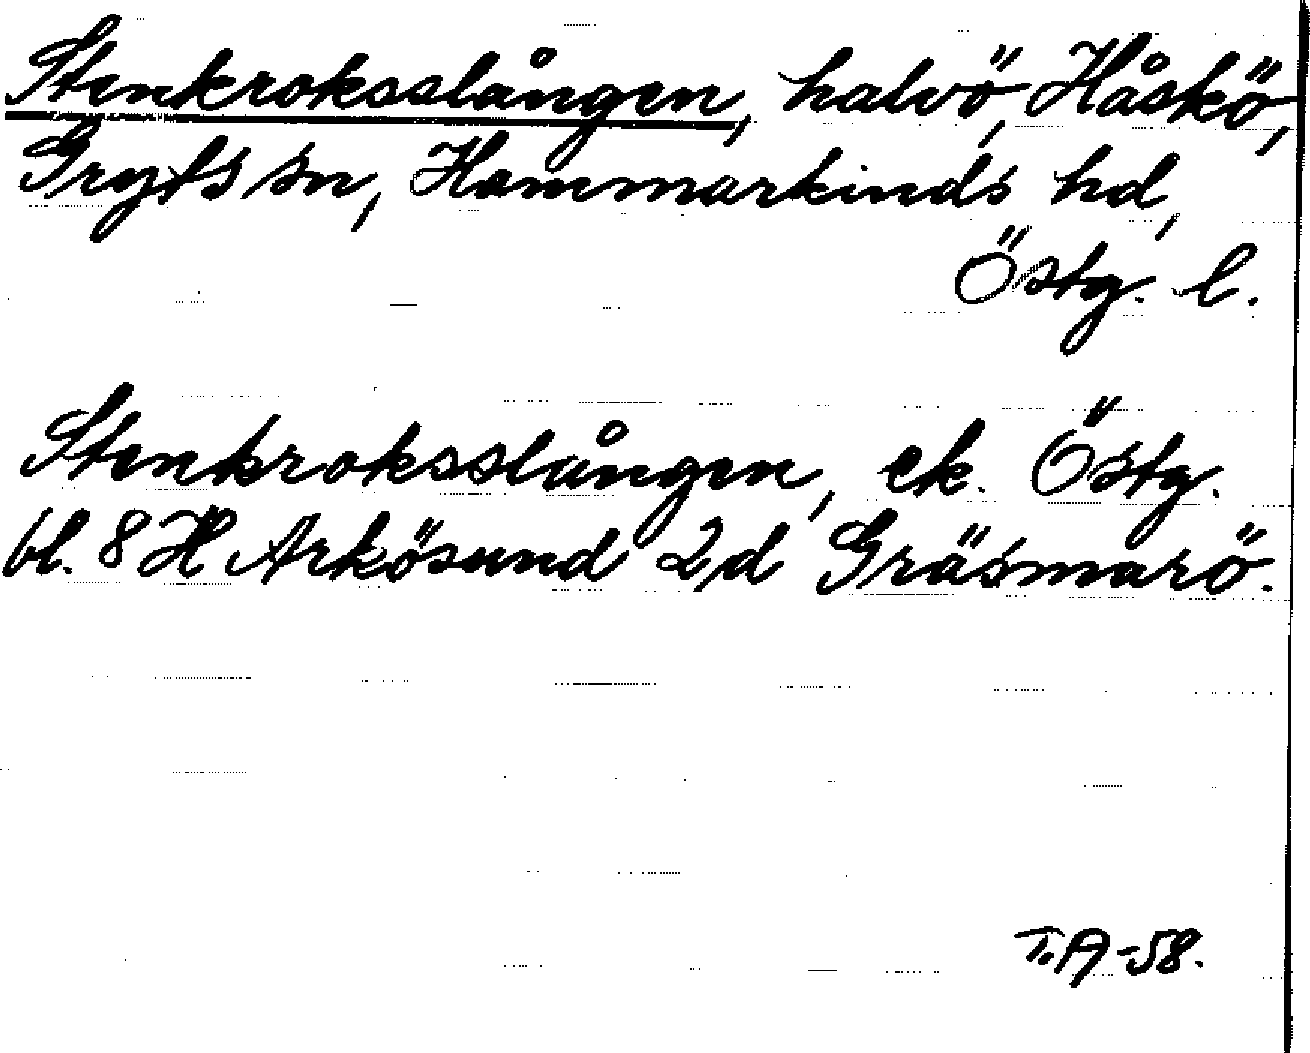 Stenkroksslången, halvö, Håskö,
Gryts sn, Hammarkinds hd,
Östg. l.
Stenkroksslången, ek. Östg.
bl. 8 H Arkösund 2d Gräsmarö.
T.A-58.